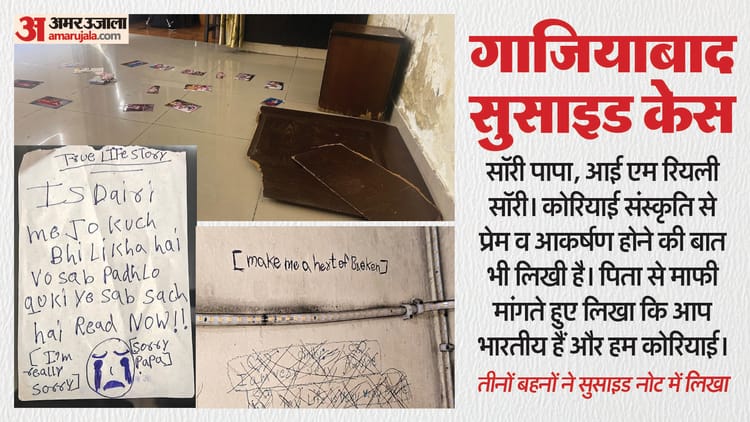 अमर उजाला
amarujala.com
गाजियाबाद
सुसाइड केस
सॉरी पापा, आई एम रियली
सॉरी। कोरियाई संस्कृति से
प्रेम व आकर्षण होने की बात
भी लिखी है। पिता से माफी
मांगते हुए लिखा कि आप
भारतीय हैं और हम कोरियाई।
तीनों बहनों ने सुसाइड नोट में लिखा
True Life Story
Is Dairi
me Jo kuch
Bhi Likha hai
Vo sab Padh Lo
quki ye sab sach
hai Read NOW!!
[I'm
really
sorry]
[sorry
Papa]
[make me a hert of Broken]